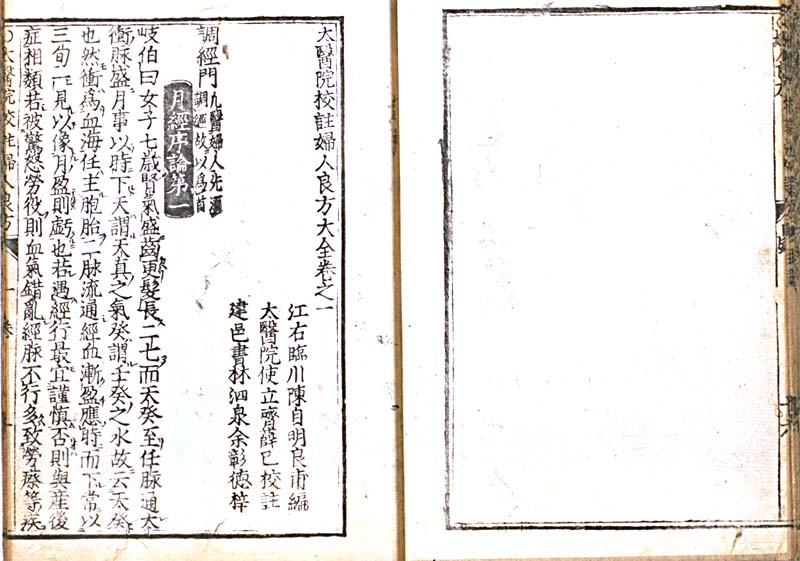 太醫院校註婦人良方大全卷之一
江右臨川陳自明良甫編
太醫院使立齋薛己校註
建邑書林泗泉余彰德梓
調經門
九醫婦人先須
調經故以爲首
月經序論第一
岐伯曰女子七歲腎氣盛齒更髮長二七而天癸至任脉通太
衝脉盛月事以時下天謂天真之氣癸謂壬癸之水故云天癸
也然衝爲血海任主胞胎二脉流通經血漸盈應時而下常以
三旬一見以像月盈則虧也若遇經行最宜謹慎否則與産後
症相類若被驚怒勞役則血氣錯亂經脉不行多致勞瘵等疾
太醫院校註婦人良方
一卷